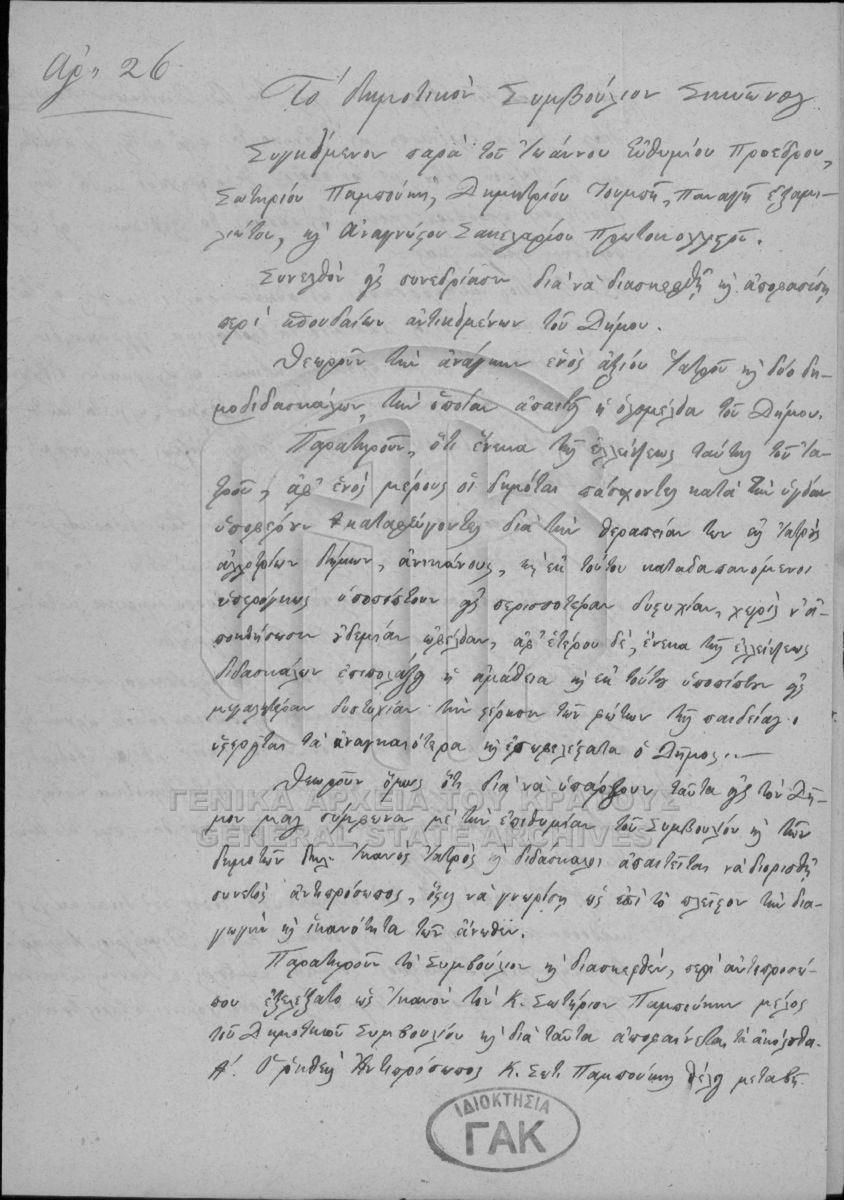 Αρ. 26
Το δημοτικόν Συμβούλιον
Συγκείμενον παρά του Ιωάννου Ευθυμίου Προέδρου,
Σωτηρίου Παμπούκη, Δημητρίου Τουμπή, Παναγή Εξαμι-
λιώτου, κ Αναγνώστου Σακελαρίου Πρωτοκολλητού.
Συνελθόν εις συνεδρίασιν δια να διασκεφθή κ αποφασίση
περί σπουδαίων αντικειμένων του Δήμου.
Θεωρούν την ανάγκην ενός αξίου Ιατρού κ δύο δη-
μοδιδασκάλων, την οποίαν απαιτεί η ολομέλεια του Δήμου.
Παρατηρούν, ότι ένεκα της ελλείψεως ταύτης του Ια-
τρού, αφ' ενός μέρους οι δημόται πάσχοντες κατά την υγείαν
υποφέρουν καταφεύγοντες δια την θεραπείαν των εις Ιατρούς
αλλοτρίων δήμων, ανικάνους, κ εκ τούτου καταδαπανόμενοι
υπερόγκως υποπίπτουν εις περισσοτέραν δυστυχίαν, χωρίς ν' α-
ποκτήσωσιν ουδεμίαν ωφέλειαν, αφ' ετέρου δε, ένεκα της ελλείψεως
διδασκάλων επιπολάζει η αμάθεια κ εκ τούτου υποπίπτει εις
μεγαλητέραν δυστυχίαν την στέρησιν των φώτων της παιδείας.
τα αναγκαιότερα κ ο Δήμος.
Θεωρούν όμως ότι δια να υπάρξουν ταύτα εις τον Δή-
μον μας σύμφωνα με την επιθυμίαν του Συμβουλίου κ των
δημοτών δηλ. Ικανός Ιατρός κ διδάσκαλοι απαιτείται να διορισθή
συνετός αντιπρόσωπος, όστις να γνωρίση ως επί το πλείστον την δια-
γωγήν κ ικανότητα των άνωθεν.
Παρατηρούν το Συμβούλιον κ διασκεφθέν, περί αντιπροσώ-
που εξελέξατο ως Ικανόν τον Κ. Σωτήριον Παμπούκην μέλος
του Δημοτικού Συμβουλίου κ δια ταύτα αποφαίνεται τα ακόλουθα.
Α'. Ο ρηθείς Αντιπρόσωπος Κ. Σωτ. Παμπούκης θέλει μεταβή
ΓΕΝΙΚΑ ΑΡΧΕΙΑ ΤΟΥ ΚΡΑΤΟΥΣ
GENERAL STATE ARCHIVES
ΙΔΙΟΚΤΗΣΙΑ
ΓΑΚ